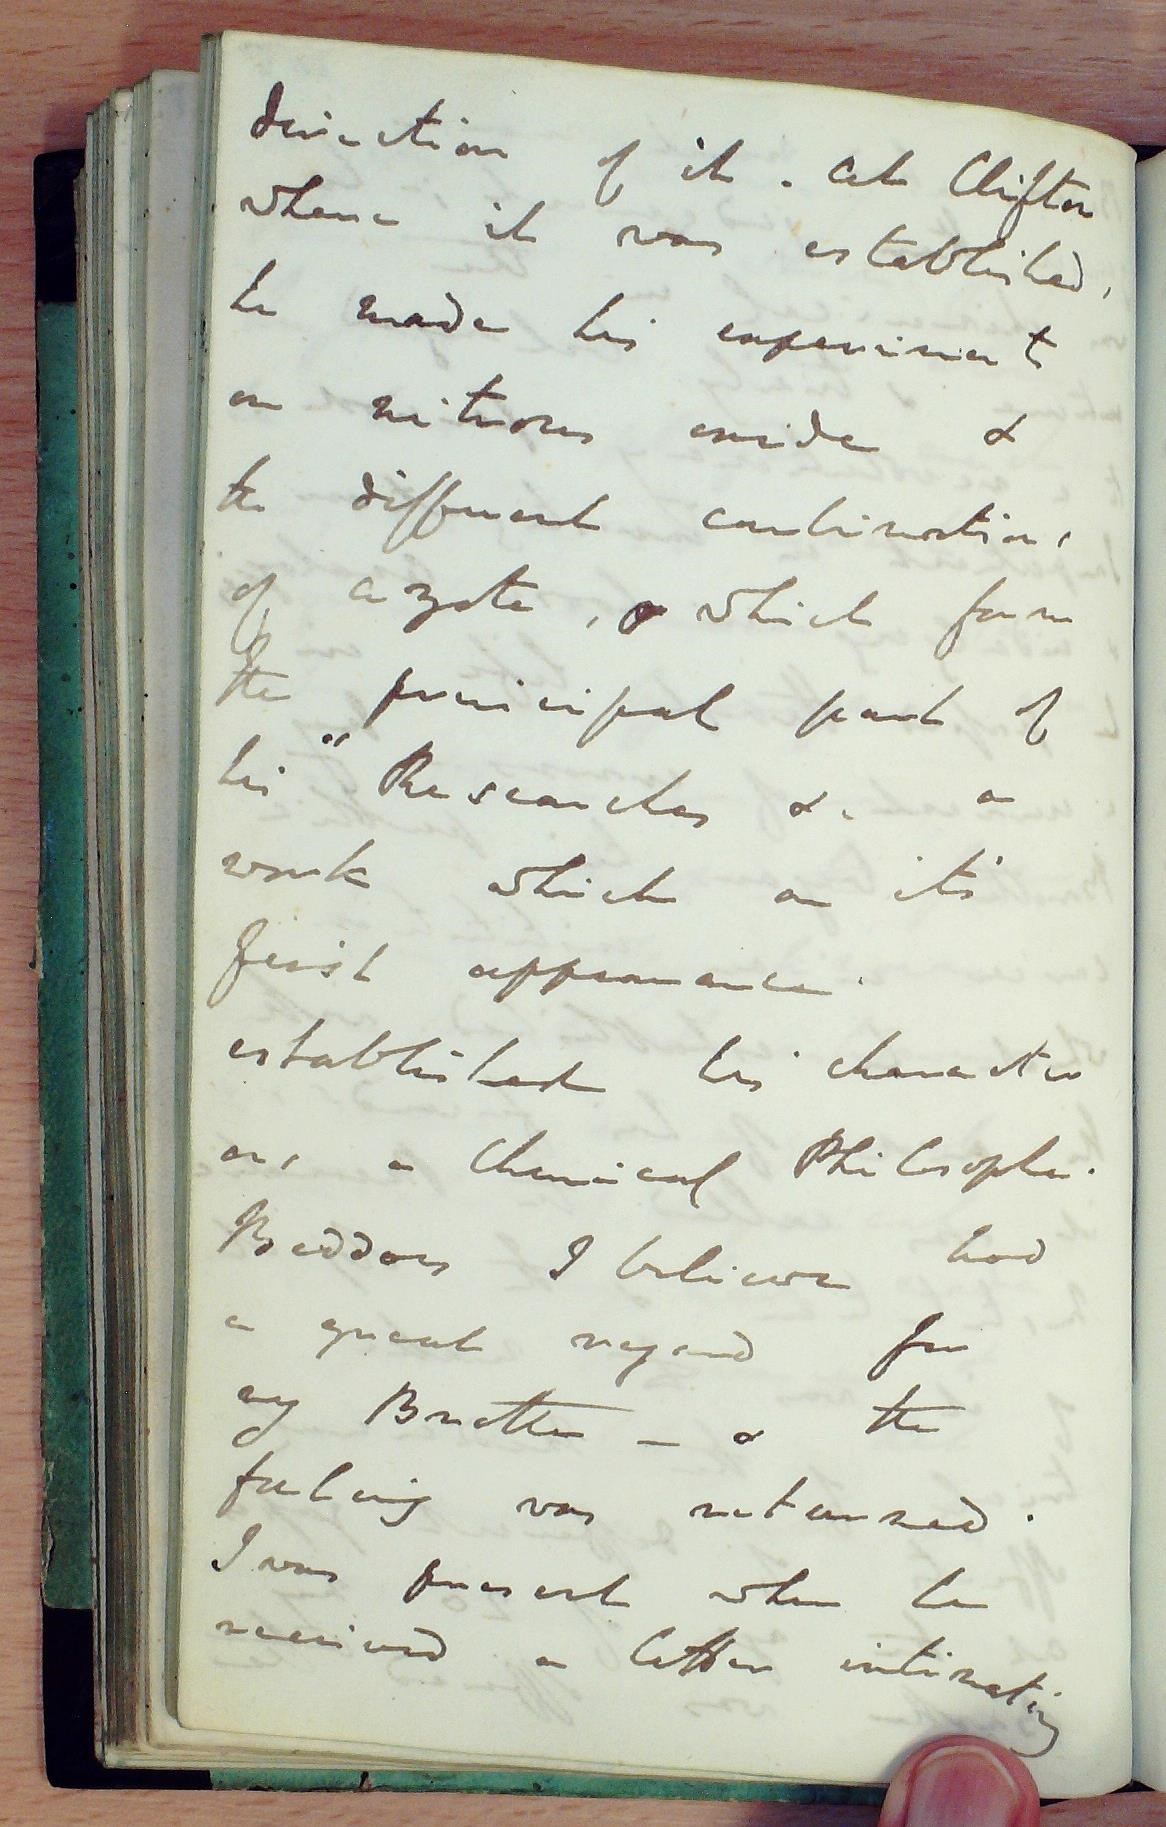 direction of it. At Clifton
where it was established,
he made his experiments
on nitrous oxide &
the different combinations
of azote, which form
the principal part of
his "Researches &c a
work which on it's
first appearance
established his character
as a Chemical Philosopher.
Beddoes I believe had
a great regard for
my Brother - & the
feeling was returned.
I was present when he
received a letter intimating